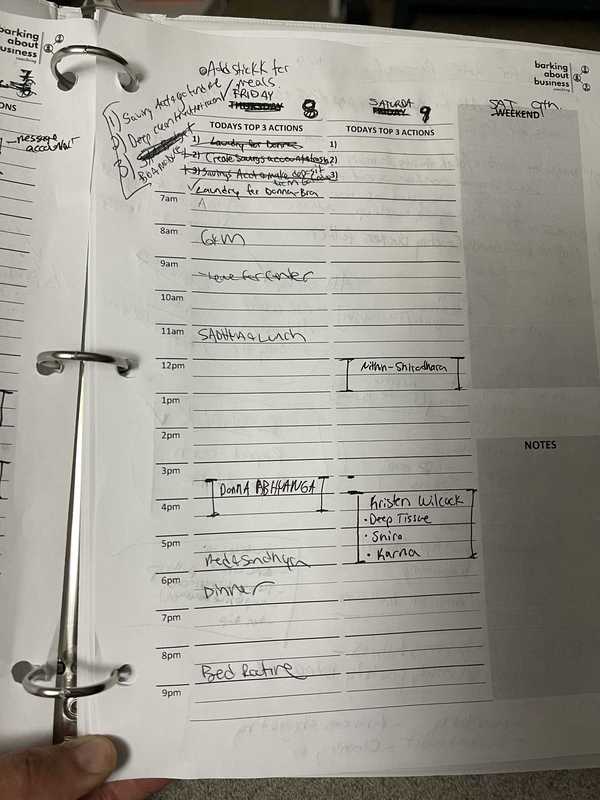 barking
about
business
coaching
7
8
ONS
message
barking
about
business
coaching
Add stickK for
meals.
FRIDAY
THURSDAY 8
SATURDA
FRIDAY 9
SAT 9th
WEEKEND
1) Saving
2) Deep clean
3)
TODAYS TOP 3 ACTIONS
TODAYS TOP 3 ACTIONS
1) Laundry for Donna
1)
2) Create Savings account
2)
3) Savings Acct + make deposit
3)
✓ Laundry for Donna-Bra
7am
A
8am
Gym
9am
for Center
10am
11am
SADHNA & Lunch
12pm
Nithin-Shirodhara
1pm
2pm
3pm
DonnA ABHYANGA
Kristen Wilcock
4pm
• Deep Tissue
• Shiro
5pm
• Karna
Med & Sandhya
6pm
Dinner
7pm
8pm
Bed Routine
9pm
NOTES